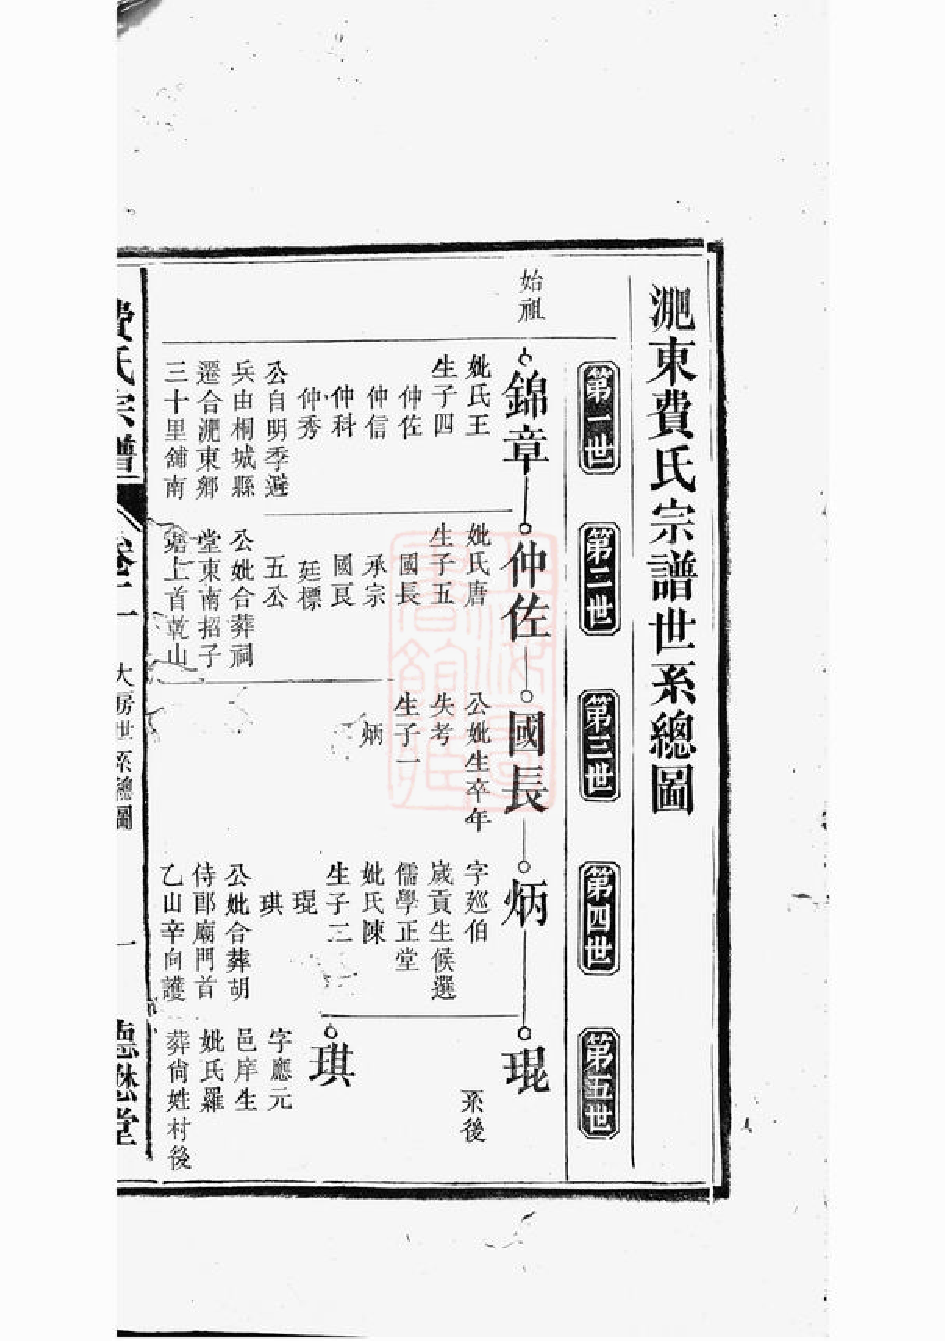 淝東費氏宗譜世系總圖
第一世
第二世
第三世
第四世
第五世
始祖
錦章
妣氏王
生子四
仲佐
仲信
仲科
仲秀
公自明季避
兵由桐城縣
遷合淝東鄉
三十里舖南
仲佐
妣氏唐
生子五
國長
承宗
國艮
廷標
五公
公妣合葬祠
堂東南招子
塘上首乾山
國長
公妣生卒年
失考
生子一
炳
炳
字廵伯
歲貢生候選
儒學正堂
妣氏陳
生子二
琨
琪
公妣合葬胡
侍郎廟門首
乙山辛向護
琨
系後
琪
字應元
邑庠生
妣氏羅
葬尙姓村後
費氏宗譜
卷二
大房世系總圖
一
德懋堂